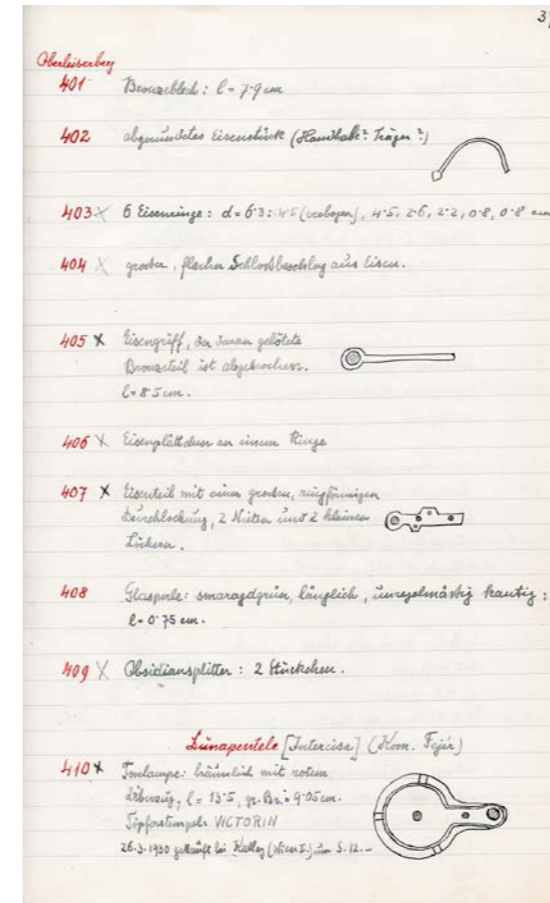 37
Oberleiserberg
401 Bronzeblech: l = 7·9 cm
402 abgerundetes Eisenstück (Handhabe? Träger?)
403 X 6 Eisenringe: d = 6·3; 4·5 (verbogen), 4·5, 2·6, 2·2, 0·8, 0·8 cm
404 X grosser, flacher Schlossbeschlag aus Eisen.
405 X Eisengriff, der daran gelötete
Bronzeteil ist abgebrochen.
l = 8·5 cm.
406 X Eisenplättchen an einem Ringe
407 X Eisenteil mit einer grossen, ringförmigen
Durchlochung, 2 Nieten und 2 kleinen
Löchern.
408 Glasperle: smaragdgrün, länglich, unregelmässig kantig;
l = 0·75 cm.
409 X Obsidiansplitter: 2 Stückchen.
Dunapentele [Intercisa] (Kom. Fejér)
410 X Tonlampe: bräunlich mit rotem
Überzug, l = 13·5, gr. Br. = 9·05 cm.
Töpferstempel: VICTORIN
26.3.1930 gekauft bei (Wien I.) um S. 12.–